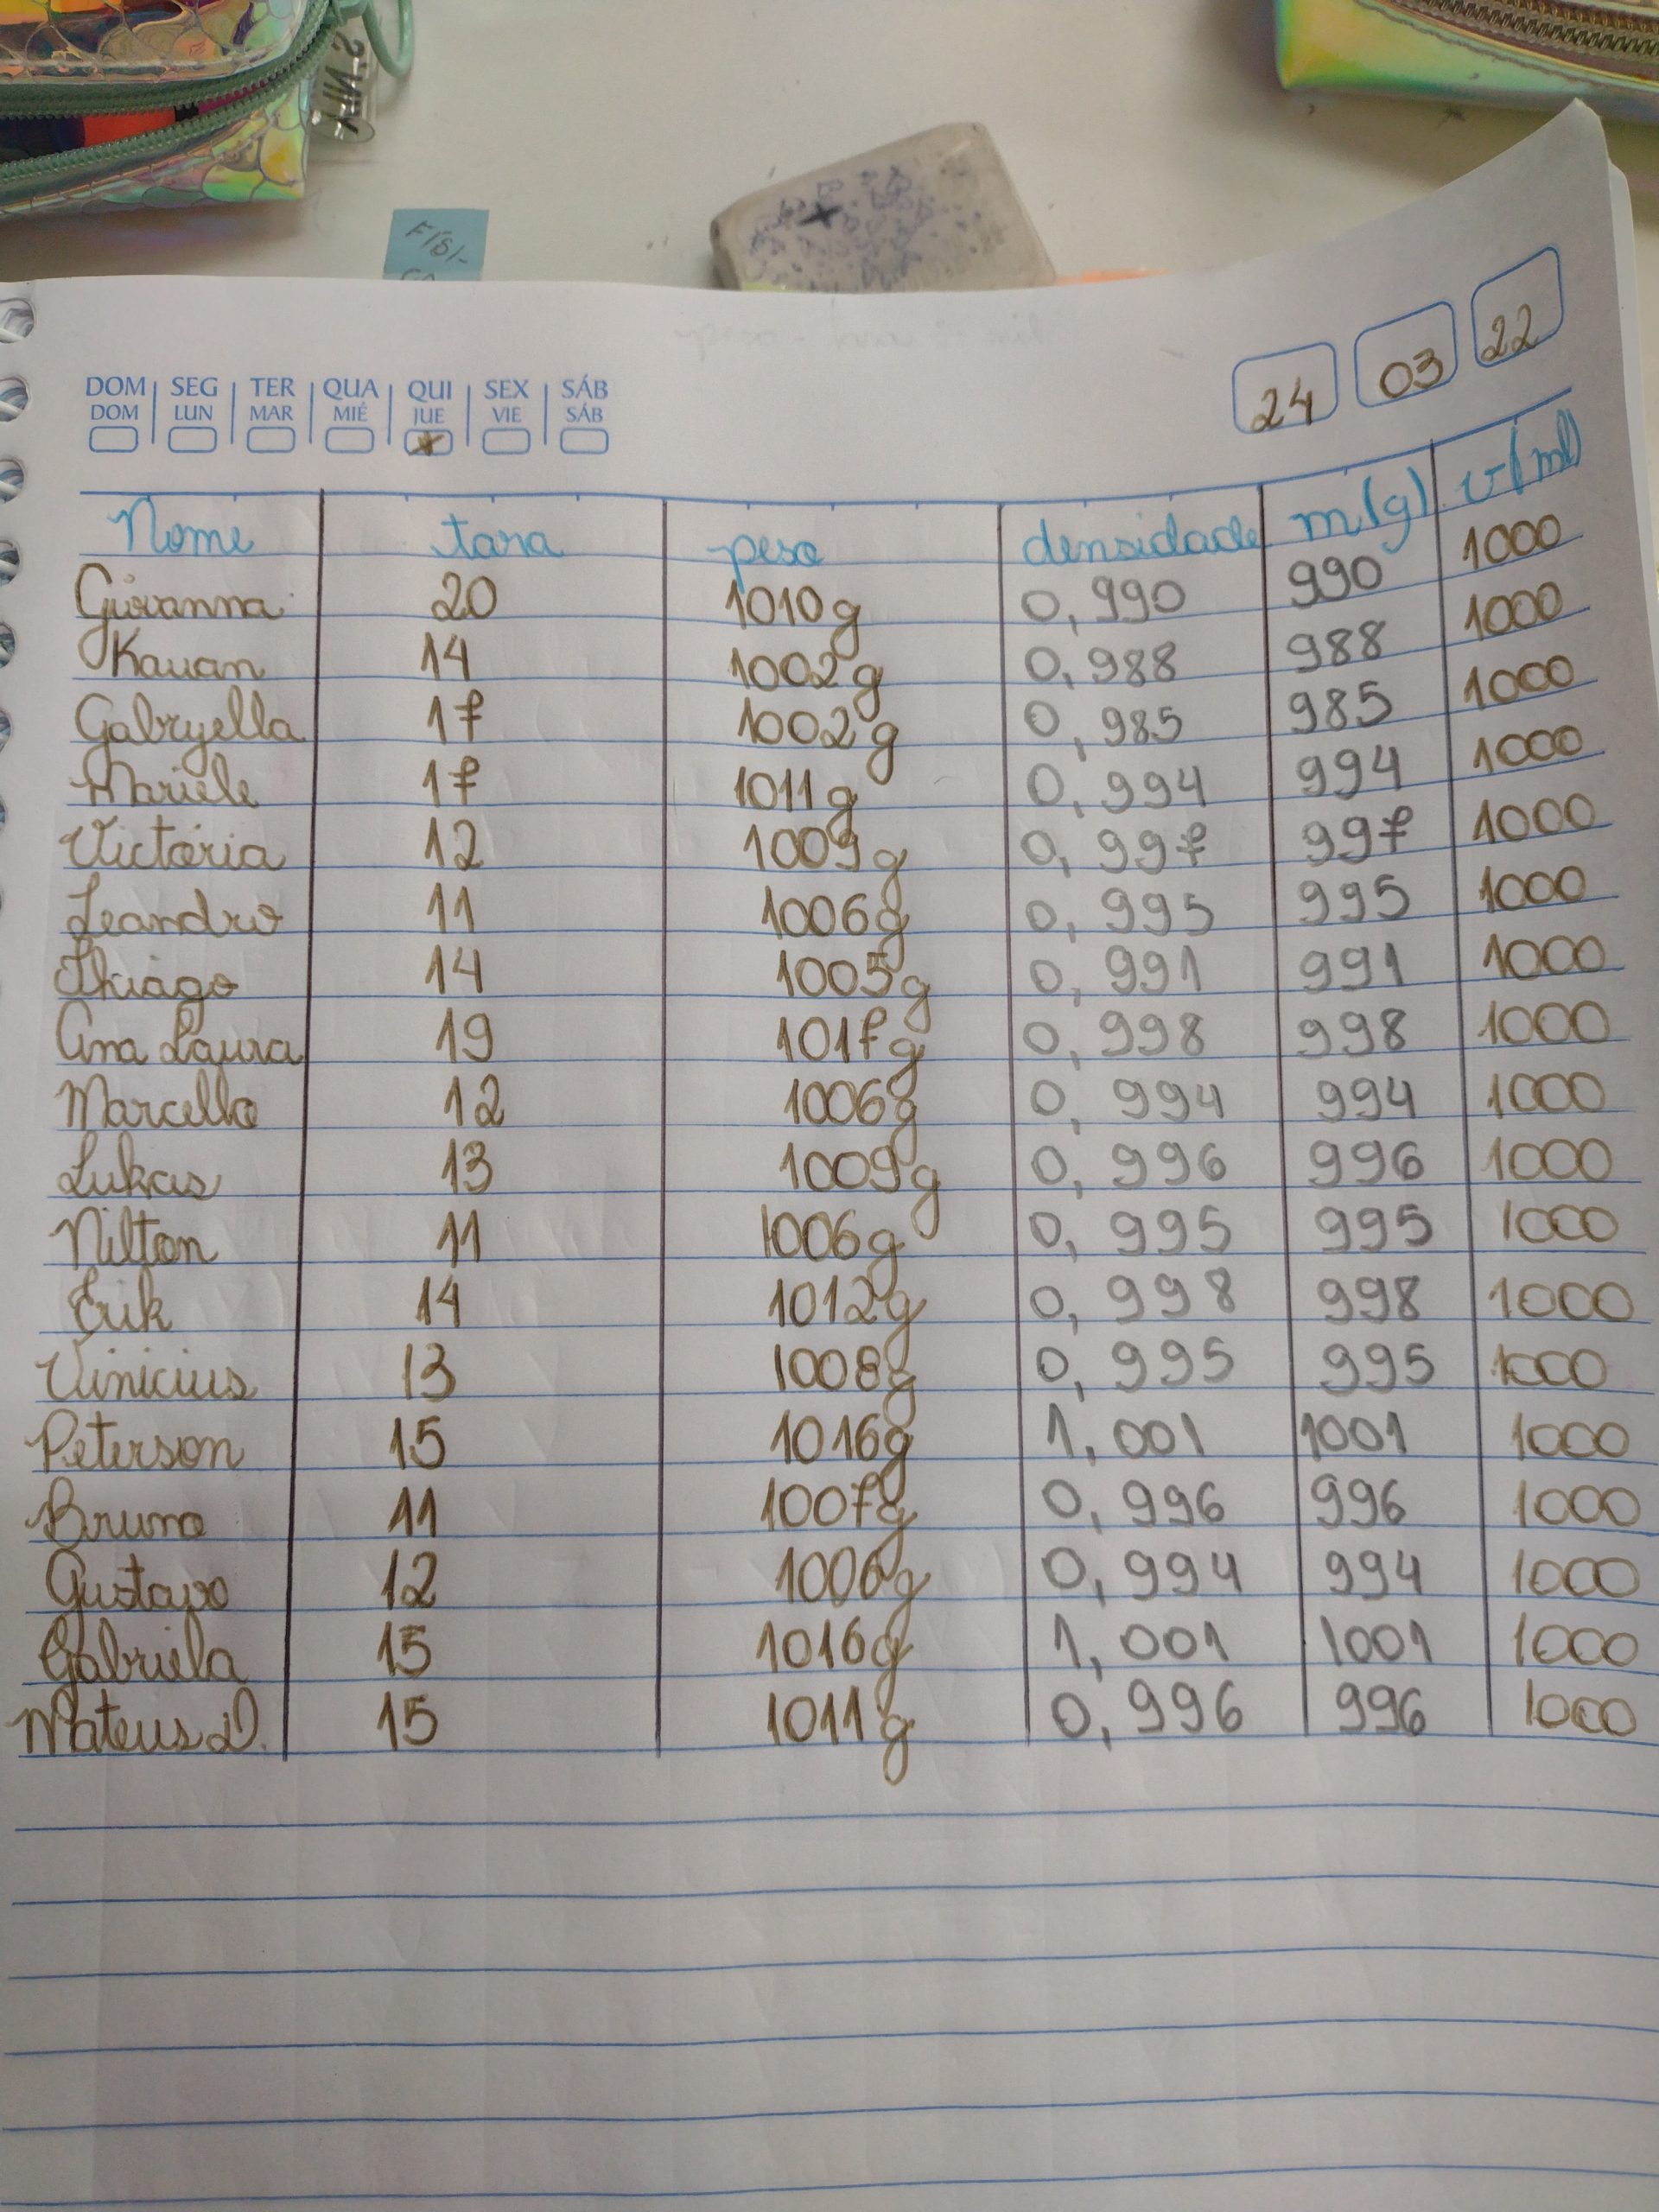 24 03 22
DOM SEG TER QUA QUI SEX SÁB
DOM LUN MAR MIÉ JUE VIE SÁB
Nome tara peso densidade m(g) v(ml)
Giovanna 20 1010g 0,990 990 1000
Kauan 14 1002g 0,988 988 1000
Gabryella 17 1002g 0,985 985 1000
Mariele 17 1011g 0,994 994 1000
Victória 12 1009g 0,997 997 1000
Leandro 11 1006g 0,995 995 1000
Thiago 14 1005g 0,991 991 1000
Ana Laura 19 1017g 0,998 998 1000
Marcello 12 1006g 0,994 994 1000
Lukas 13 1009g 0,996 996 1000
Nilton 11 1006g 0,995 995 1000
Erik 14 1012g 0,998 998 1000
Vinicius 13 1008g 0,995 995 1000
Peterson 15 1016g 1,001 1001 1000
Bruno 11 1007g 0,996 996 1000
Gustavo 12 1006g 0,994 994 1000
Gabriela 15 1016g 1,001 1001 1000
Mateus D. 15 1011g 0,996 996 1000